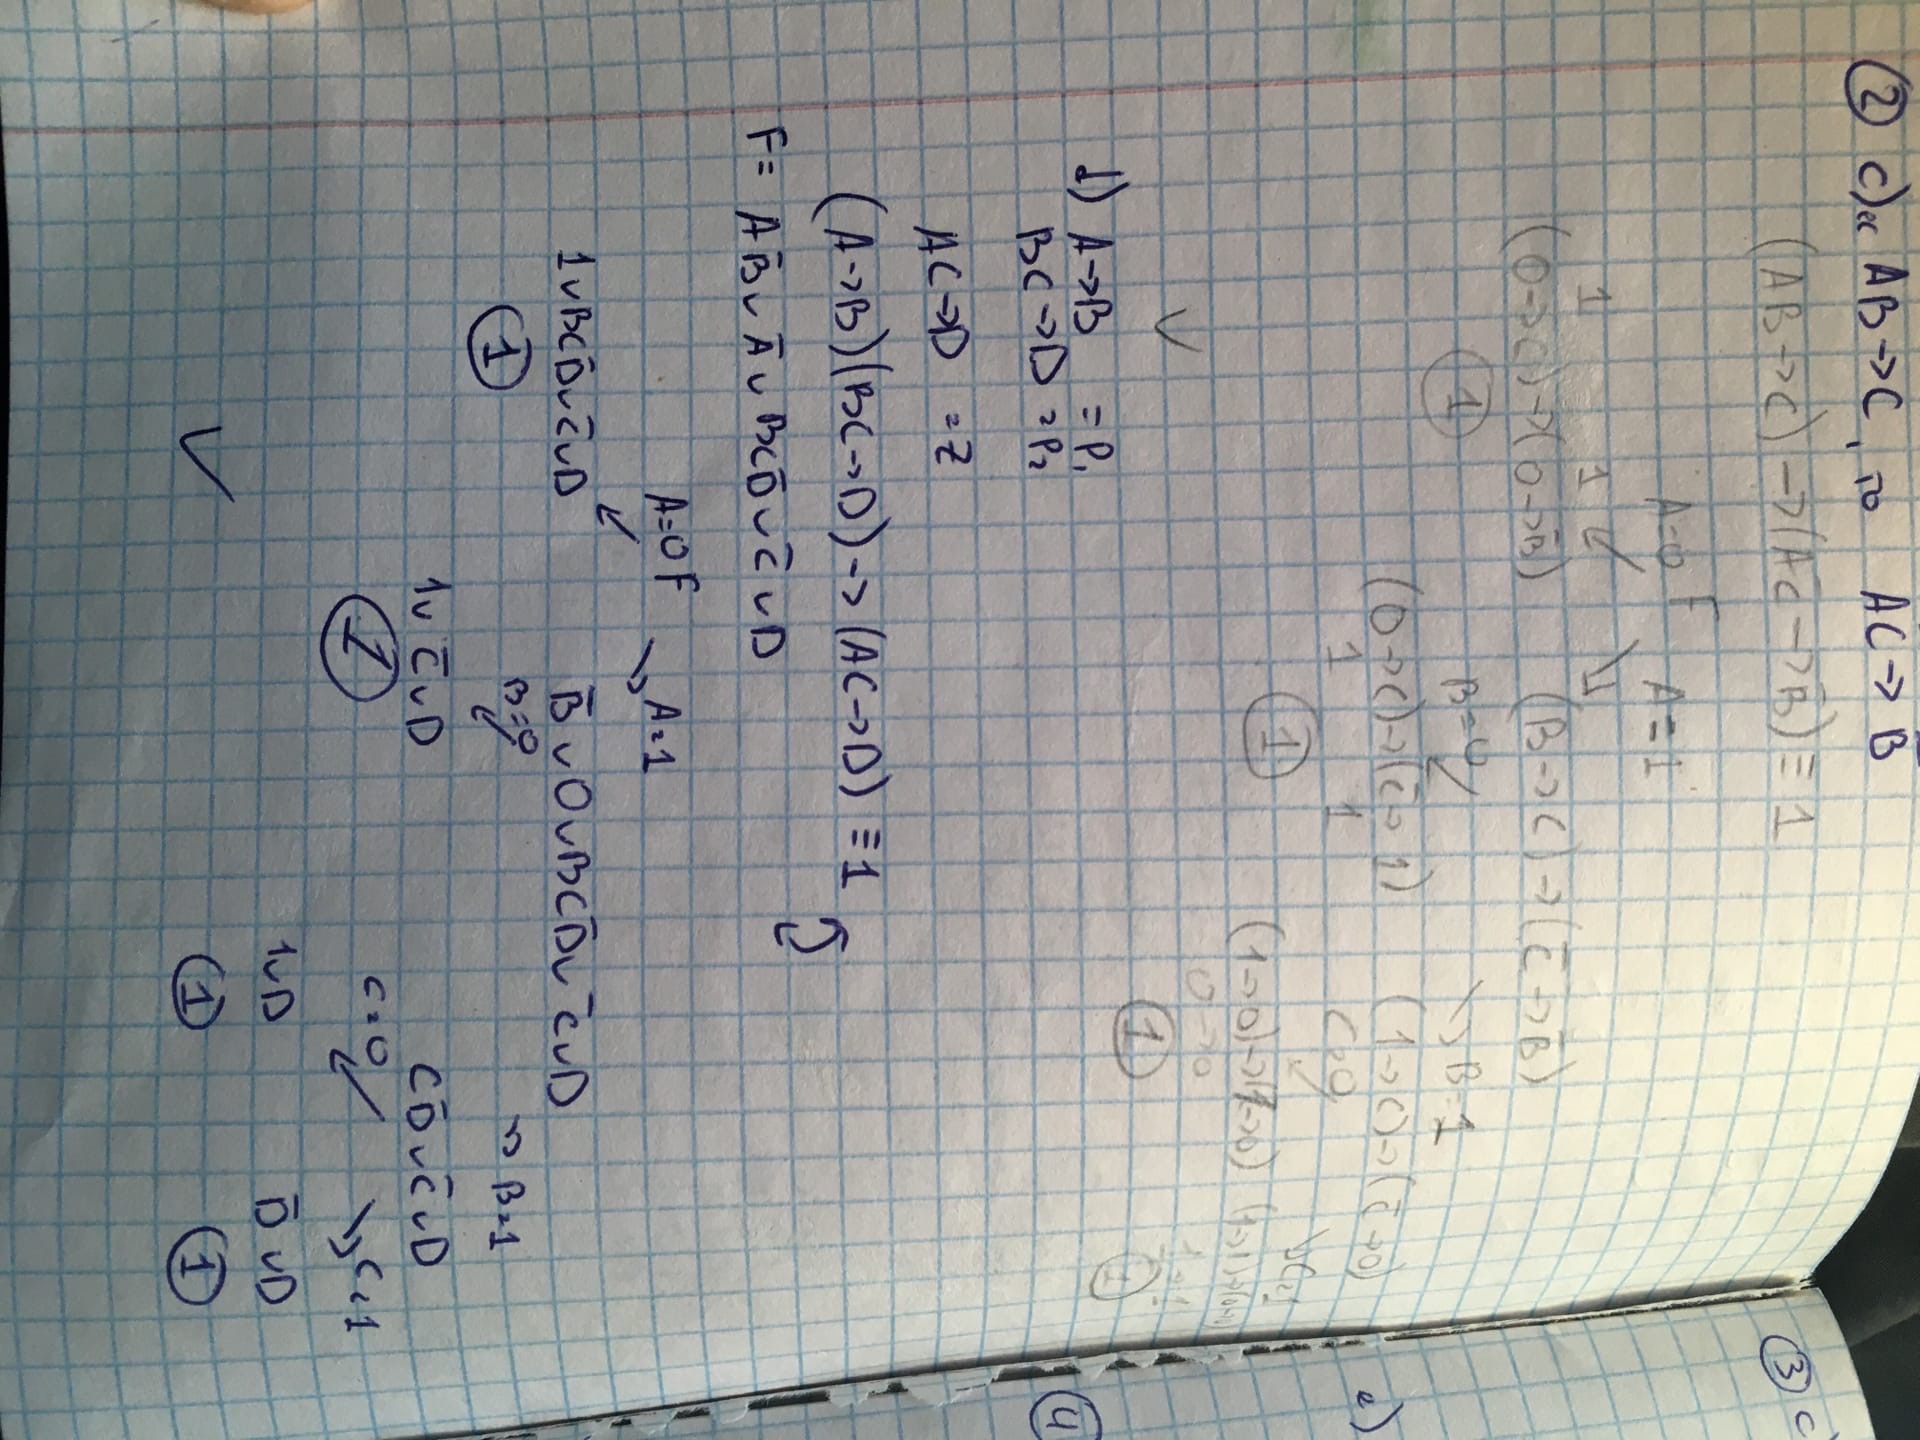 ② c) AB->C, то AC̄->B̄
(AB->C)->(AC̄->B̄)≡1
F
A=0 A=1
1 1
(0->C)->(0->B̄) (B->C)->(C̄->B̄)
① B=0 B=1
(0->C)->(C̄->1) (1->C)->(C̄->0)
1 1 C=0 C=1
① (1->0)->(1->0)
0->0
① ①
d) A->B = P₁
BC->D = P₂
AC->D = Z
(A->B)(BC->D)->(AC->D)≡1
F= AB̄∨Ā∨BCD̄∨C̄∨D
A=0 F A=1
1∨BCD̄∨C̄∨D B̄∨0∨BCD̄∨C̄∨D
① B=0 B=1
1∨C̄∨D CD̄∨C̄∨D
① C=0 C=1
1∨D D̄∨D
① ①
③ c)
④